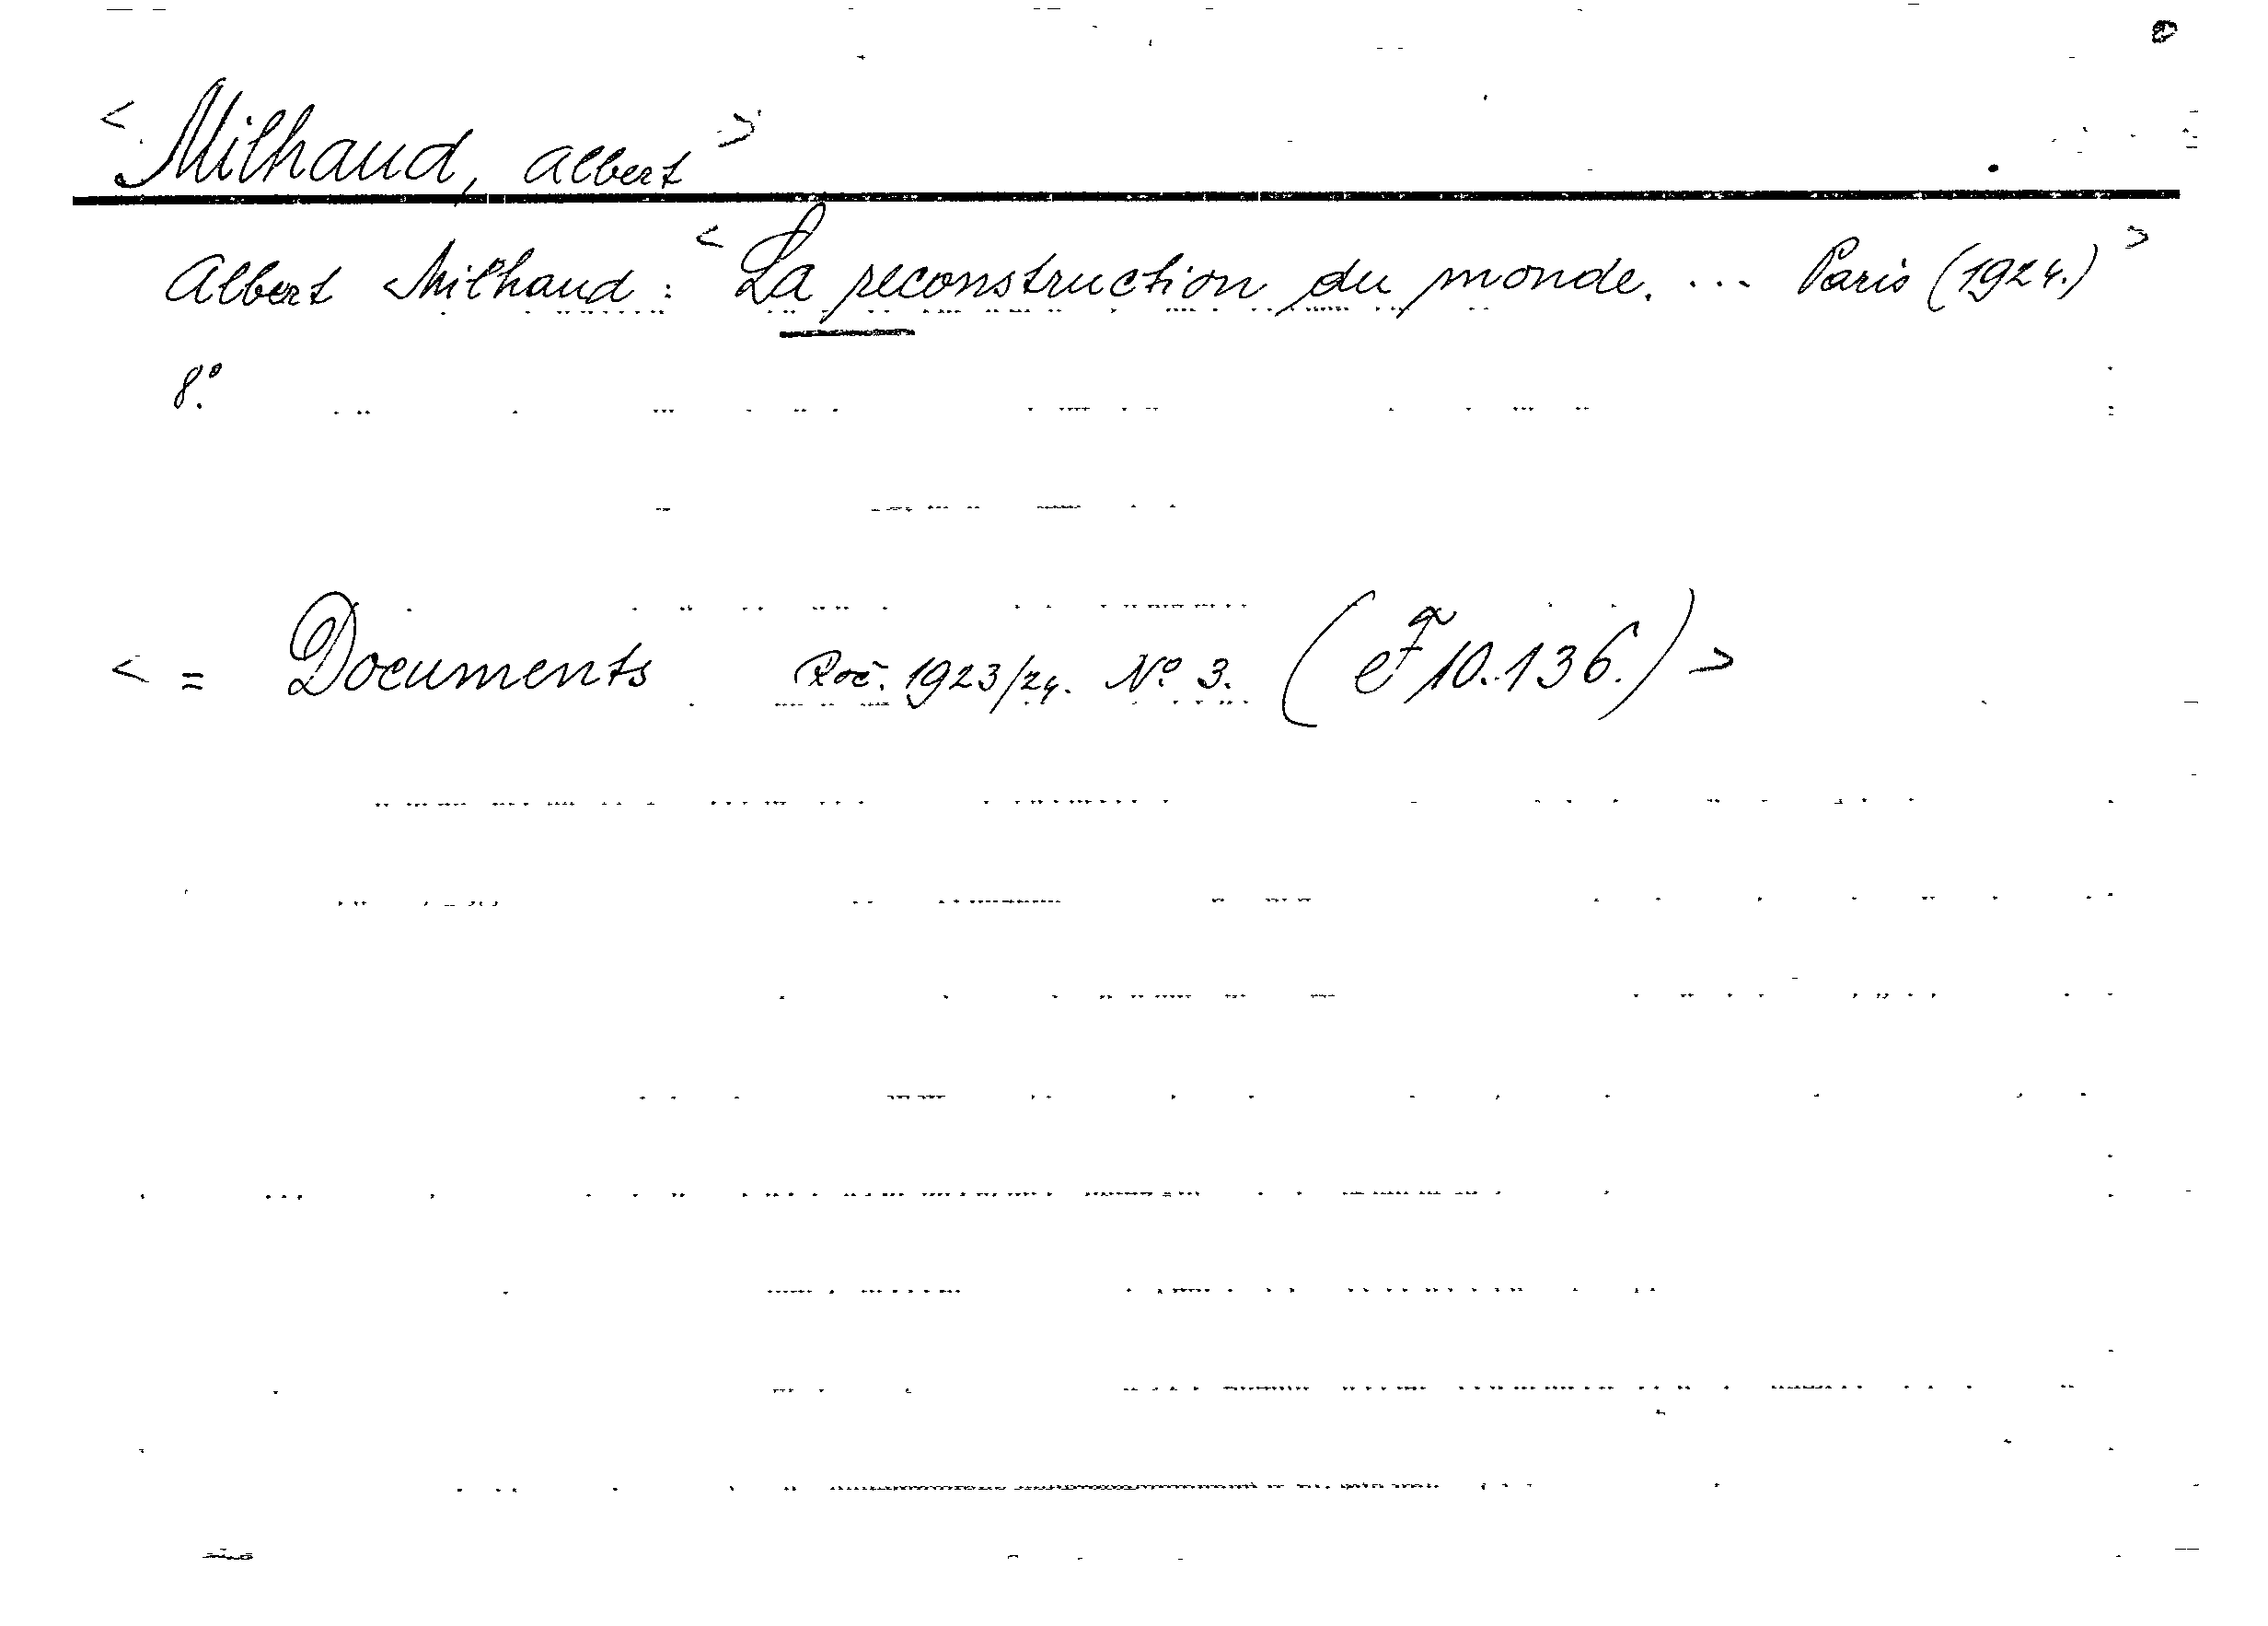 <Milhaud, Albert>
Albert Milhaud: <La reconstruction du monde. ... Paris (1924.)>
8.°
<= Documents Roč. 1923/24. N° 3. (F 10.136.)>